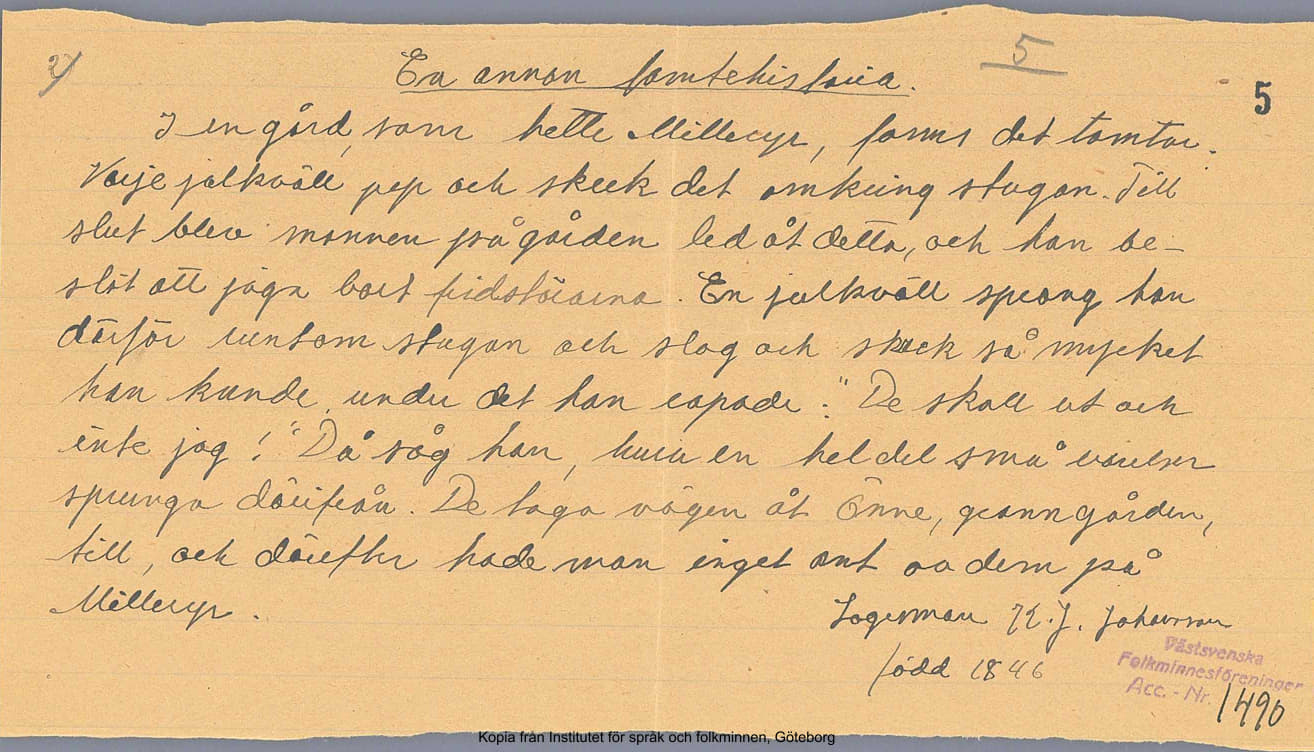 2)
5
En annan tomtehistoria.
5
I en gård, som hette Milleryr, fanns det tomtar.
Varje julkväll pep och skrek det omkring stugan. Till
slut blev mannen på gården led åt detta, och han be-
slöt att jaga bort fridstörarna. En julkväll sprang han
därför runtom stugan och slog och skrek så mycket
han kunde, under det han ropade: "De skall ut och
inte jag!" Då såg han, huru en hel del små varelser
sprungo därifrån. De togo vägen åt Önne, granngården,
till, och därefter hade man inget ont av dem på
Milleryr.
Sagesman K. J. Johansson
född 1846
Västsvenska
Folkminnesföreningen
Acc. - Nr. 1490
Kopia från Institutet för språk och folkminnen, Göteborg